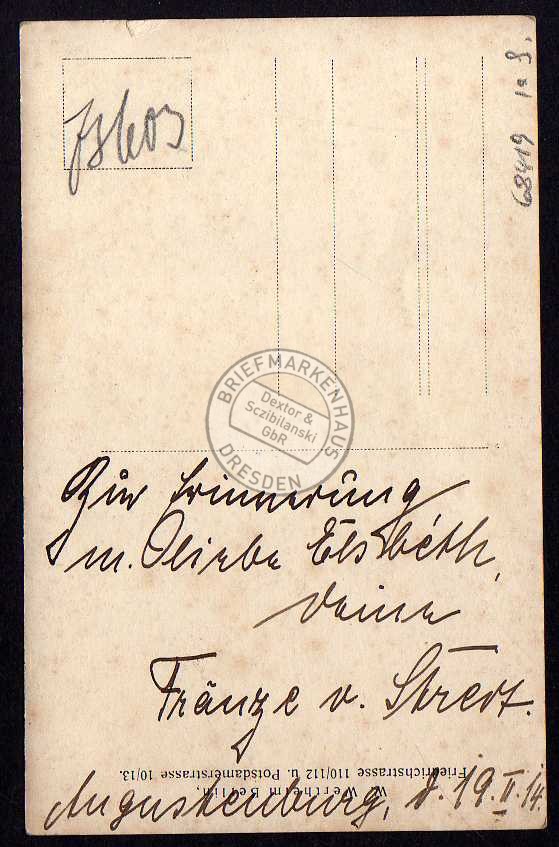 68419 1a 9,
BRIEFMARKENHAUS
Dextor &
Sczibilanski
GbR
DRESDEN
Zur Erinnerung
m. liebe Elsbeth,
Deine
Fränze v.
W. Wertheim Berlin,
Friedrichstrasse 110/112 u. Potsdamerstrasse 10/13.
Augustenburg, d. 19. II. 14.